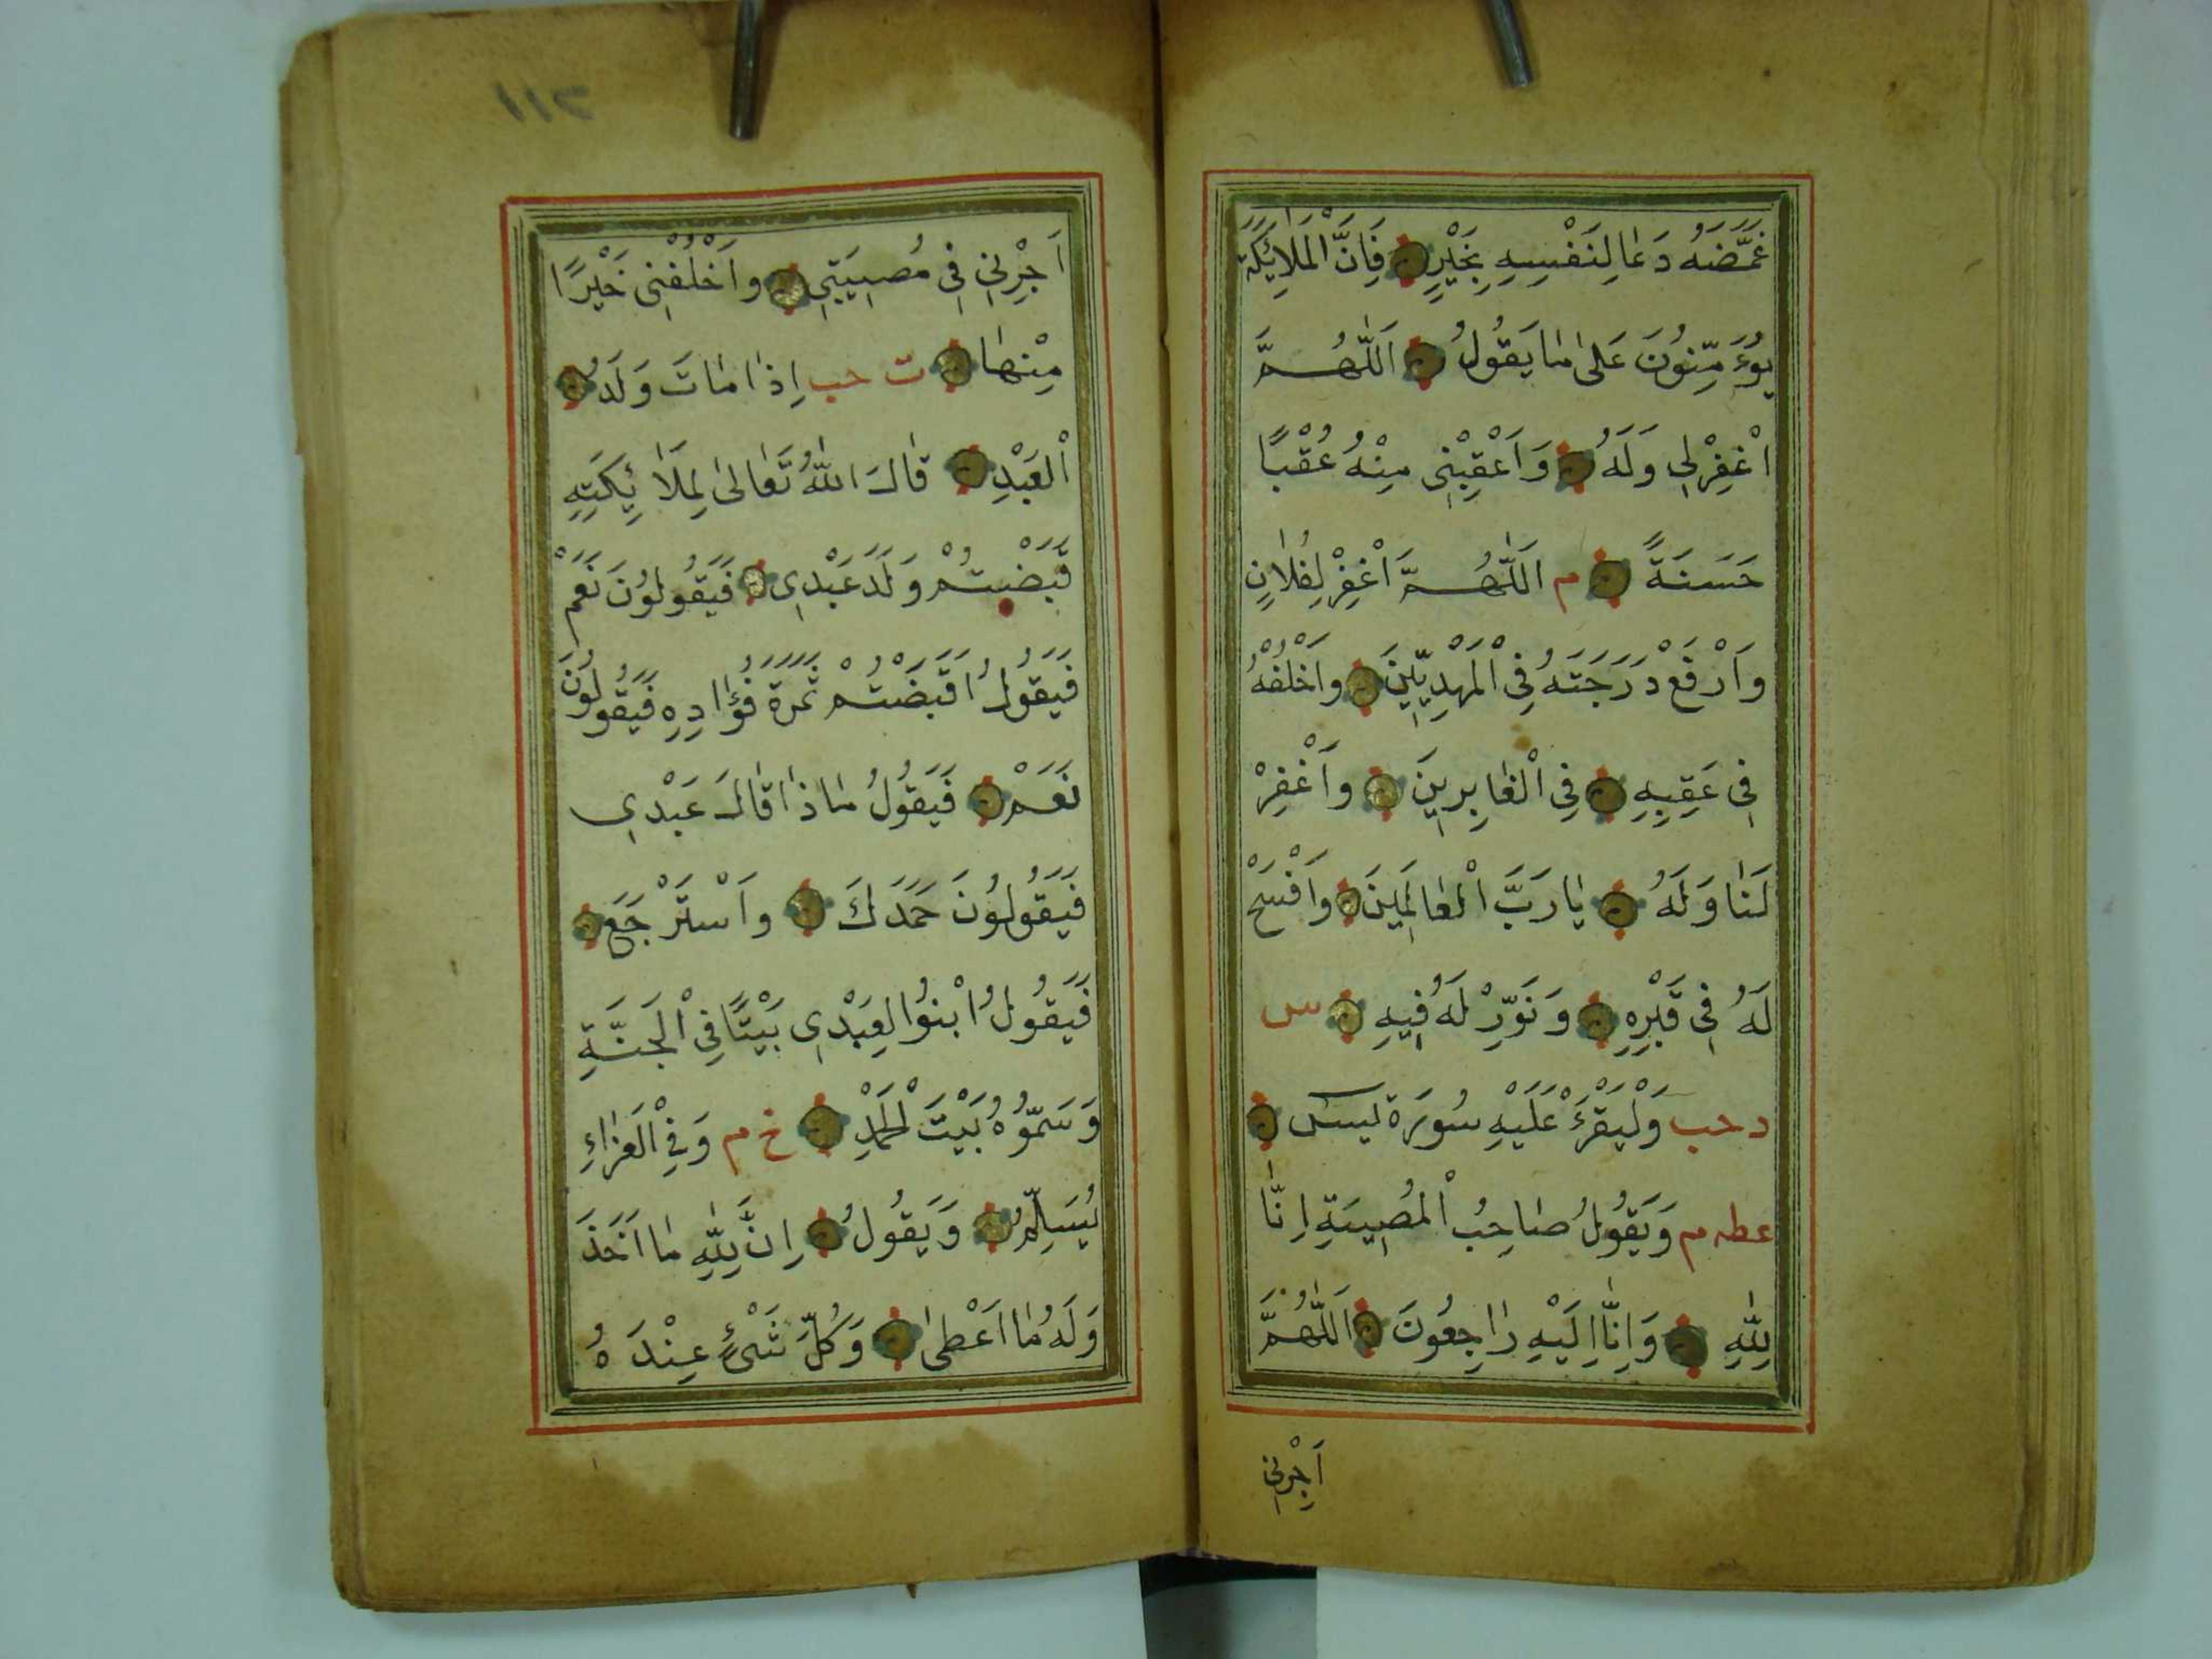 غَمَّضَهُ دَعَا لِنَفْسِهِ بِخَيْرٍ فَاِنَّ الْمَلَائِكَةَ
يُؤَمِّنُونَ عَلٰى مَا يَقُولُ اَللّٰهُمَّ
اغْفِرْ لِي وَلَهُ وَاَعْقِبْنِي مِنْهُ عُقْبًا
حَسَنَةً م اَللّٰهُمَّ اغْفِرْ لِفُلَانٍ
وَارْفَعْ دَرَجَتَهُ فِي الْمَهْدِيِّينَ وَاخْلُفْهُ
فِي عَقِبِهِ فِي الْغَابِرِينَ وَاغْفِرْ
لَنَا وَلَهُ يَا رَبَّ الْعَالَمِينَ وَافْسَحْ
لَهُ فِي قَبْرِهِ وَنَوِّرْ لَهُ فِيهِ س
د حب وَلْيَقْرَءْ عَلَيْهِ سُورَةَ يٰسٓ
عطه م وَيَقُولُ صَاحِبُ الْمُصِيبَةِ اِنَّا
لِلّٰهِ وَاِنَّا اِلَيْهِ رَاجِعُونَ اَللّٰهُمَّ
اَجِرْنِي
١١٢
اَجِرْنِي فِي مُصِيبَتِي وَاَخْلُفْنِي خَيْرًا
مِنْهَا ت حب اِذَا مَاتَ وَلَدُ
الْعَبْدِ قَالَ اللّٰهُ تَعَالٰى لِمَلَائِكَتِهِ
قَبَضْتُمْ وَلَدَ عَبْدِي فَيَقُولُونَ نَعَمْ
فَيَقُولُ اَقَبَضْتُمْ ثَمَرَةَ فُؤَادِهِ فَيَقُولُونَ
نَعَمْ فَيَقُولُ مَاذَا قَالَ عَبْدِي
فَيَقُولُونَ حَمَدَكَ وَاسْتَرْجَعَ
فَيَقُولُ ابْنُوا لِعَبْدِي بَيْتًا فِي الْجَنَّةِ
وَسَمُّوهُ بَيْتَ الْحَمْدِ خ م وَفِي الْعَزَاءِ
يُسَلِّمُ وَيَقُولُ اِنَّ لِلّٰهِ مَا اَخَذَ
وَلَهُ مَا اَعْطٰى وَكُلُّ شَيْءٍ عِنْدَهُ